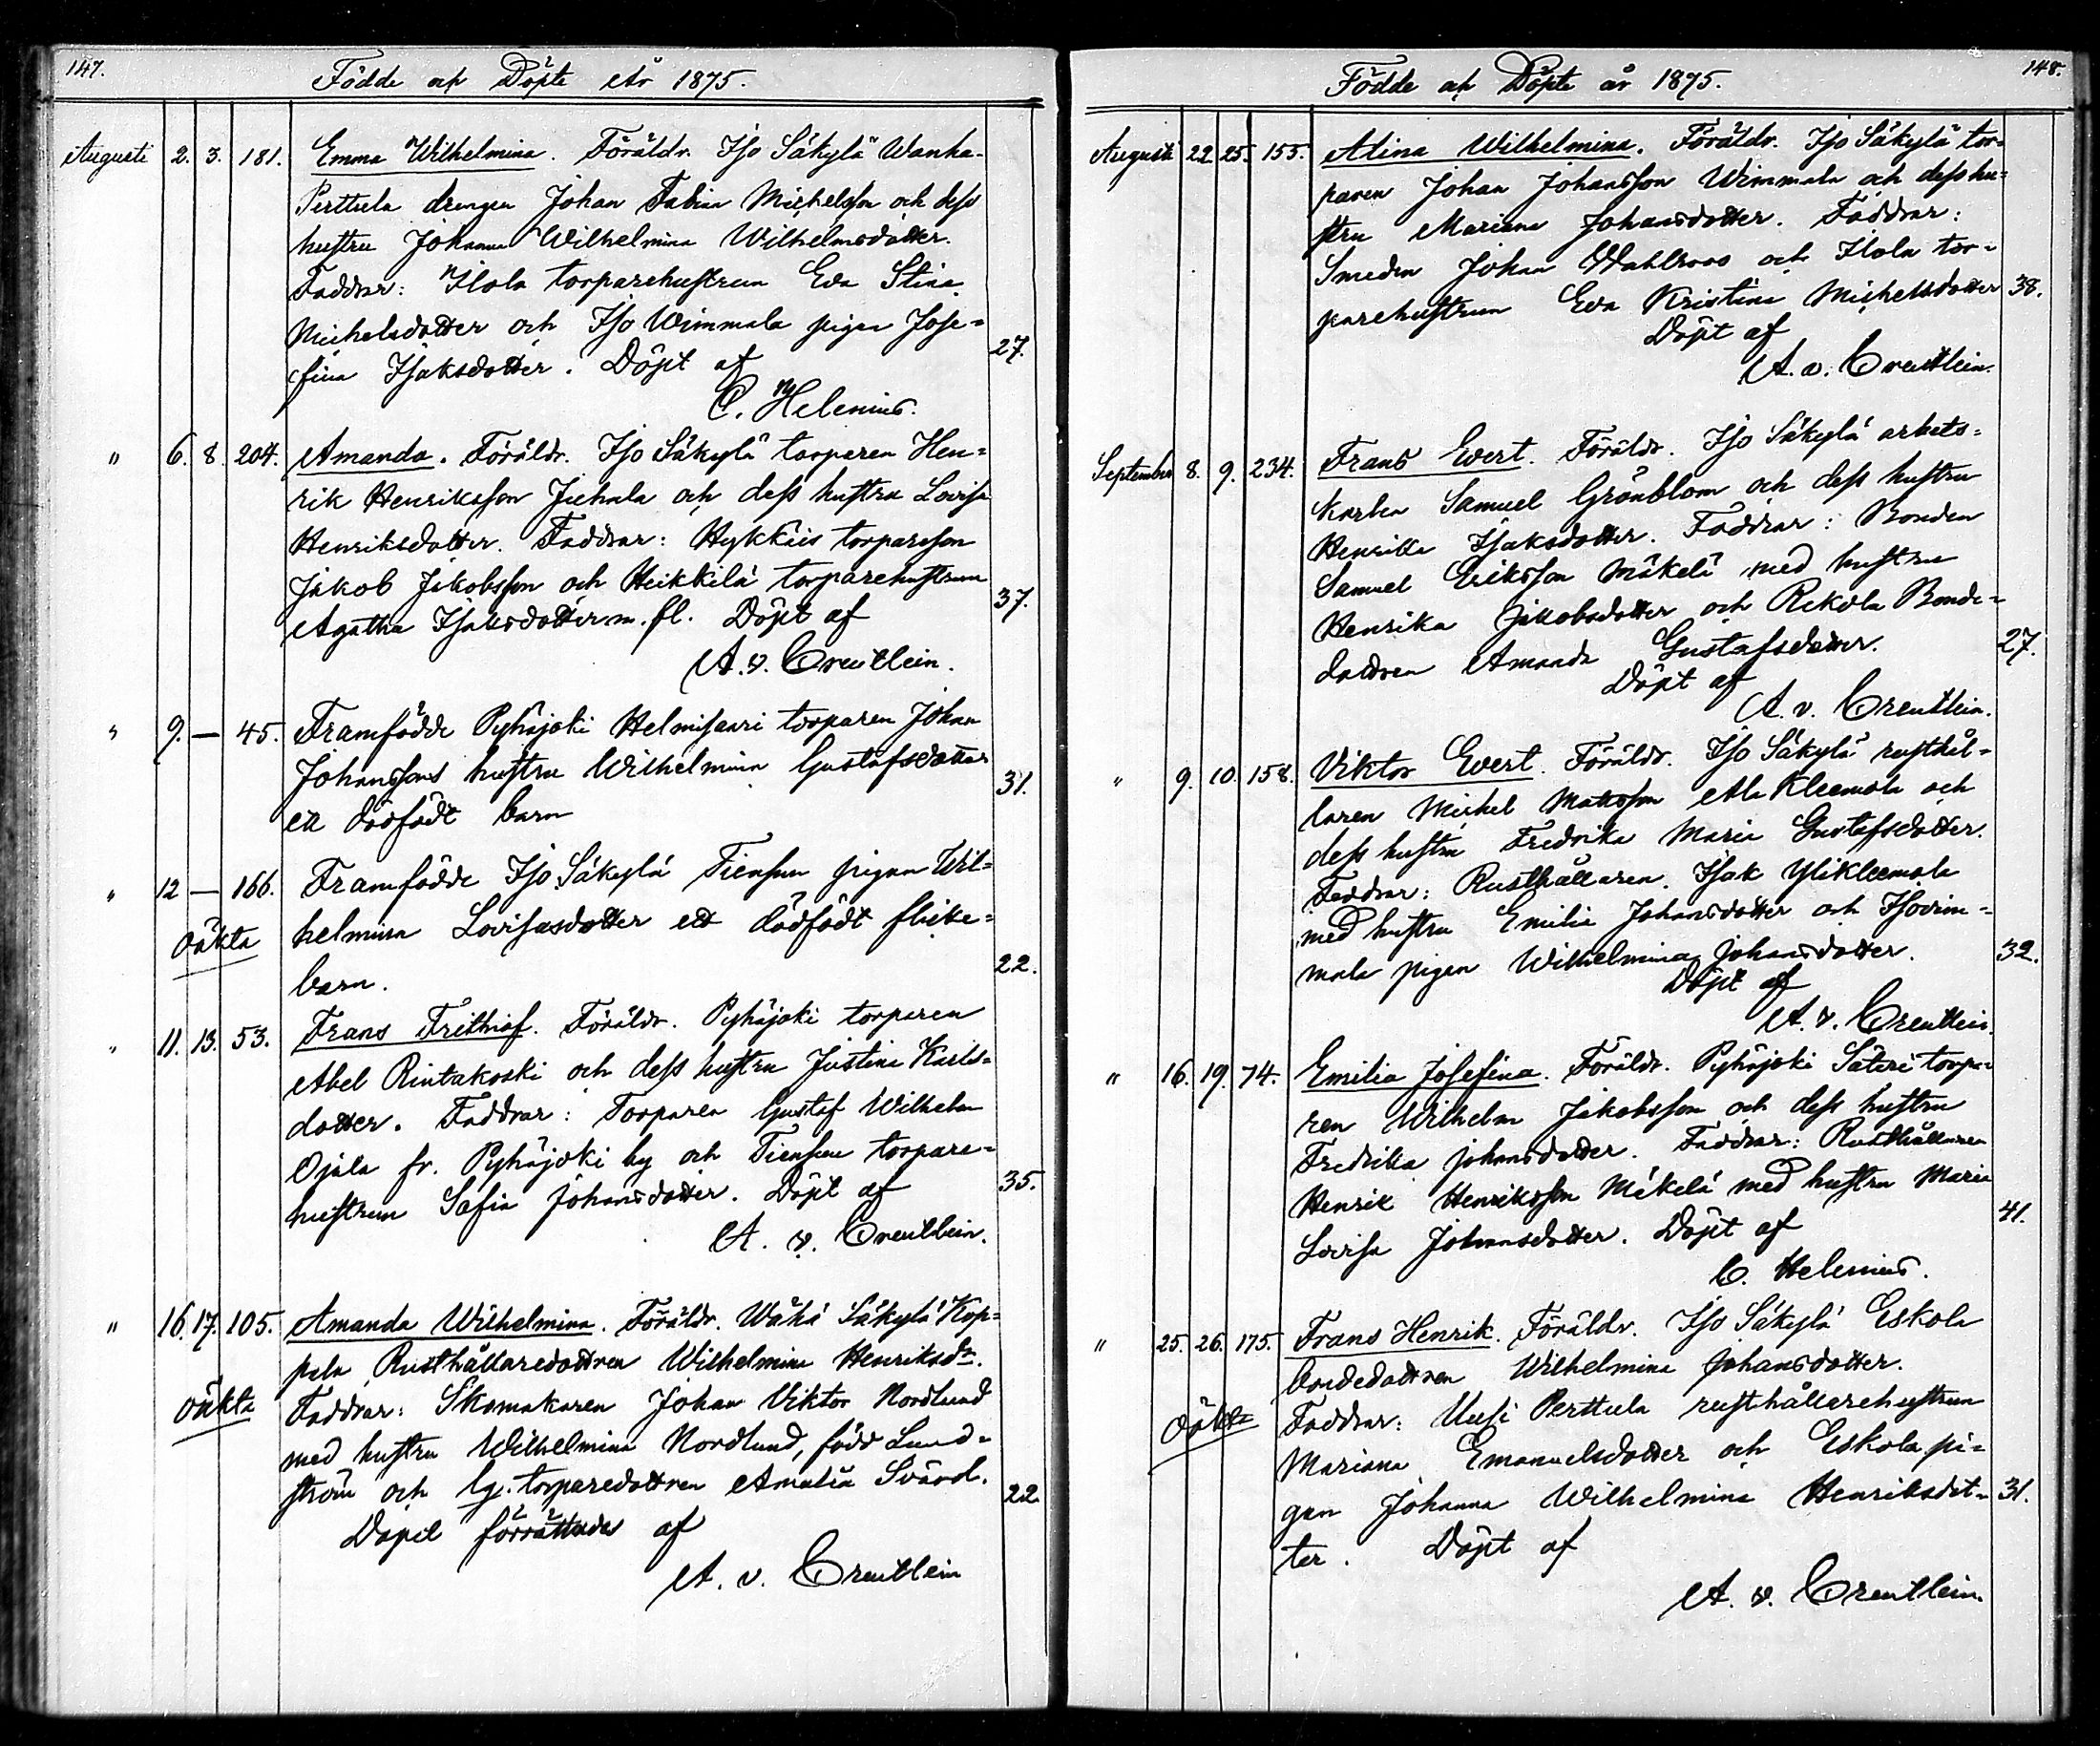 147.
Födde och Döpte År 1875.
Augusti 2. 3. 181. Emma Wilhelmina. Föräldr. Iso Säkylä Wanha-
Perttula drengen Johan Fabian Michelsson och dess
hustru Johanna Wilhelmina Wilhelmsdotter.
Faddrar: Ilola torparehustrun Eva Stina
Michelsdotter och Iso Wimmala pigan Jose=
fina Isaksdotter. Döpt af 27.
C. Helenius.
" 6. 8. 204. Amanda. Föräldr. Iso Säkylä torparen Hen=
rik Henriksson Juhala och dess hustru Lovisa
Henriksdotter. Faddrar: Hykkiis torparesson
Jakob Jakobsson och Heikkilä torparehustrun
Agatha Isaksdotter m. fl. Döpt af 37.
A. v. Creutlein.
" 9. — 45. Framfödde Pyhäjoki Helmisaari torparen Johan
Johanssons hustru Wilhelmina Gustafsdotter 31.
ett dödfödt barn
" 12 — 166. Framfödde Iso Säkylä Tiensuu pigan Wil=
oäkta helmina Lovisasdotter ett dödfödt flicke=
barn. 22.
" 11. 13. 53. Frans Frithiof. Föräldr. Pyhäjoki torparen
Abel Rintakoski och dess hustru Justina Karls=
dotter. Faddrar: Torparen Gustaf Wilhelm
Ojala fr. Pyhäjoki by och Tiensuu torpare=
hustrun Sofia Johansdotter. Döpt af 35.
A. v. Creutlein.
" 16. 17. 105. Amanda Wilhelmina. Föräldr. Wähä Säkylä Kop=
pala Rusthållaredottren Wilhelmina Henriksdr.
oäkta Faddrar: Skomakaren Johan Viktor Nordlund
med hustru Wilhelmina Nordlund, född Lund=
ström och lg. torparedottren Amalia Svärd. 22
Dopet förrättades af
A. v. Creutlein
148.
Födde och Döpte år 1875.
Augusti 22. 25. 155. Alina Wilhelmina. Föräldr. Iso Säkylä tor-
paren Johan Johansson Wimmala och dess hu=
stru Mariana Johansdotter. Faddrar:
Smeden Johan Wahlroos och Ilola tor-
parehustrun Eva Kristina Michelsdotter 38.
Döpt af
A. v. Creutlein.
September 8. 9. 234. Frans Evert. Föräldr. Iso Säkylä arbets=
karlen Samuel Grönblom och dess hustru
Henrika Isaksdotter. Faddrar: Bonden
Samuel Eriksson Mäkelä med hustru
Henrika Jakobsdotter och Rekola Bonde-
dottren Amanda Gustafsdotter. 27.
Döpt af
A. v. Creutlein.
" 9. 10. 158. Viktor Evert. Föräldr. Iso Säkylä rusthål=
laren Michel Mattsson Ala Kleemola och
dess hustru Fredrika Maria Gustafsdotter.
Faddrar: Rusthållaren Isak Ylikleemola
med hustru Emilia Johansdotter och Isovim=
mala pigan Wilhelmina Johansdotter. 32.
Döpt af
A. v. Creutlein.
" 16. 19. 74. Emilia Josefina. Föräldr. Pyhäjoki Säteri torpa=
ren Wilhelm Jakobsson och dess hustru
Fredrika Johansdotter. Faddrar: Rusthållaren
Henrik Henriksson Mäkelä med hustru Maria
Lovisa Johansdotter. Döpt af 41.
C. Helenius.
" 25. 26. 175. Frans Henrik. Föräldr. Iso Säkylä Eskola
bondedottren Wilhelmina Johansdotter.
Oäkta Faddrar: Uusi Perttula rusthållarehustrun
Mariana Emanuelsdotter och Eskola pi=
gan Johanna Wilhelmina Henriksdot= 31.
ter. Döpt af
A. v. Creutlein.